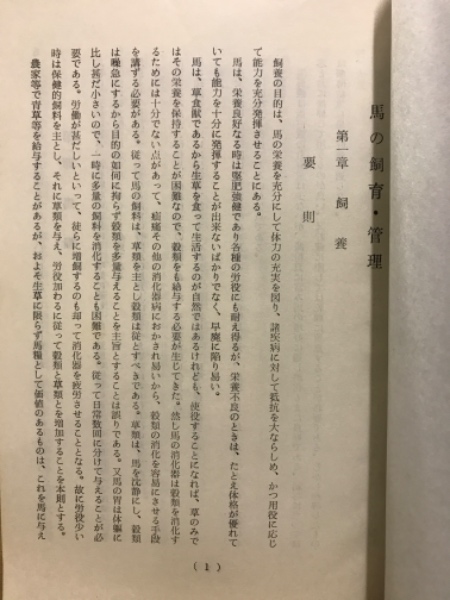 馬の飼育・管理
第一章　飼養
要則
飼養の目的は、馬の栄養を充分にして体力の充実を図り、諸疾病に対して抵抗を大ならしめ、かつ用役に応じ
て能力を充分発揮させることにある。
馬は、栄養良好なる時は堅肥強健であり各種の労役にも耐え得るが、栄養不良のときは、たとえ体格が優れて
いても能力を十分に発揮することが出来ないばかりでなく、早魔に陥り易い。
馬は、草食獣であるから生草を食って生活するのが自然ではあるけれども、使役することになれば、草のみで
はその栄養を保持することが困難なので、穀類をも給与する必要が生じてきた。然し馬の消化器は穀類を消化す
るためには十分でない点があって、疝痛その他の消化器病におかされ易いから、穀類の消化を容易にさせる手段
を講ずる必要がある。従って馬の飼料は、草類を主とし穀類は従とすべきである。草類は、馬を沈静にし、穀類
は噪急にするから目的の如何に拘らず穀類を多量与えることを主旨とすることは誤りである。又馬の胃は体軀に
比し甚だ小さいので、一時に多量の飼料を消化することも困難である。従って日常数回に分けて与えることが必
要である。労働が甚だしいといって、徒らに増飼するのも却って消化器を疲労させることとなる。故に労役少い
時は保健的飼料を主とし、それに草類を与え、労役加わるに従って穀類と草類とを増加することを本則とする。
農家等で青草等を給与することがあるが、およそ生草に限らず馬糧として価値のあるものは、これを馬に与え
(1)